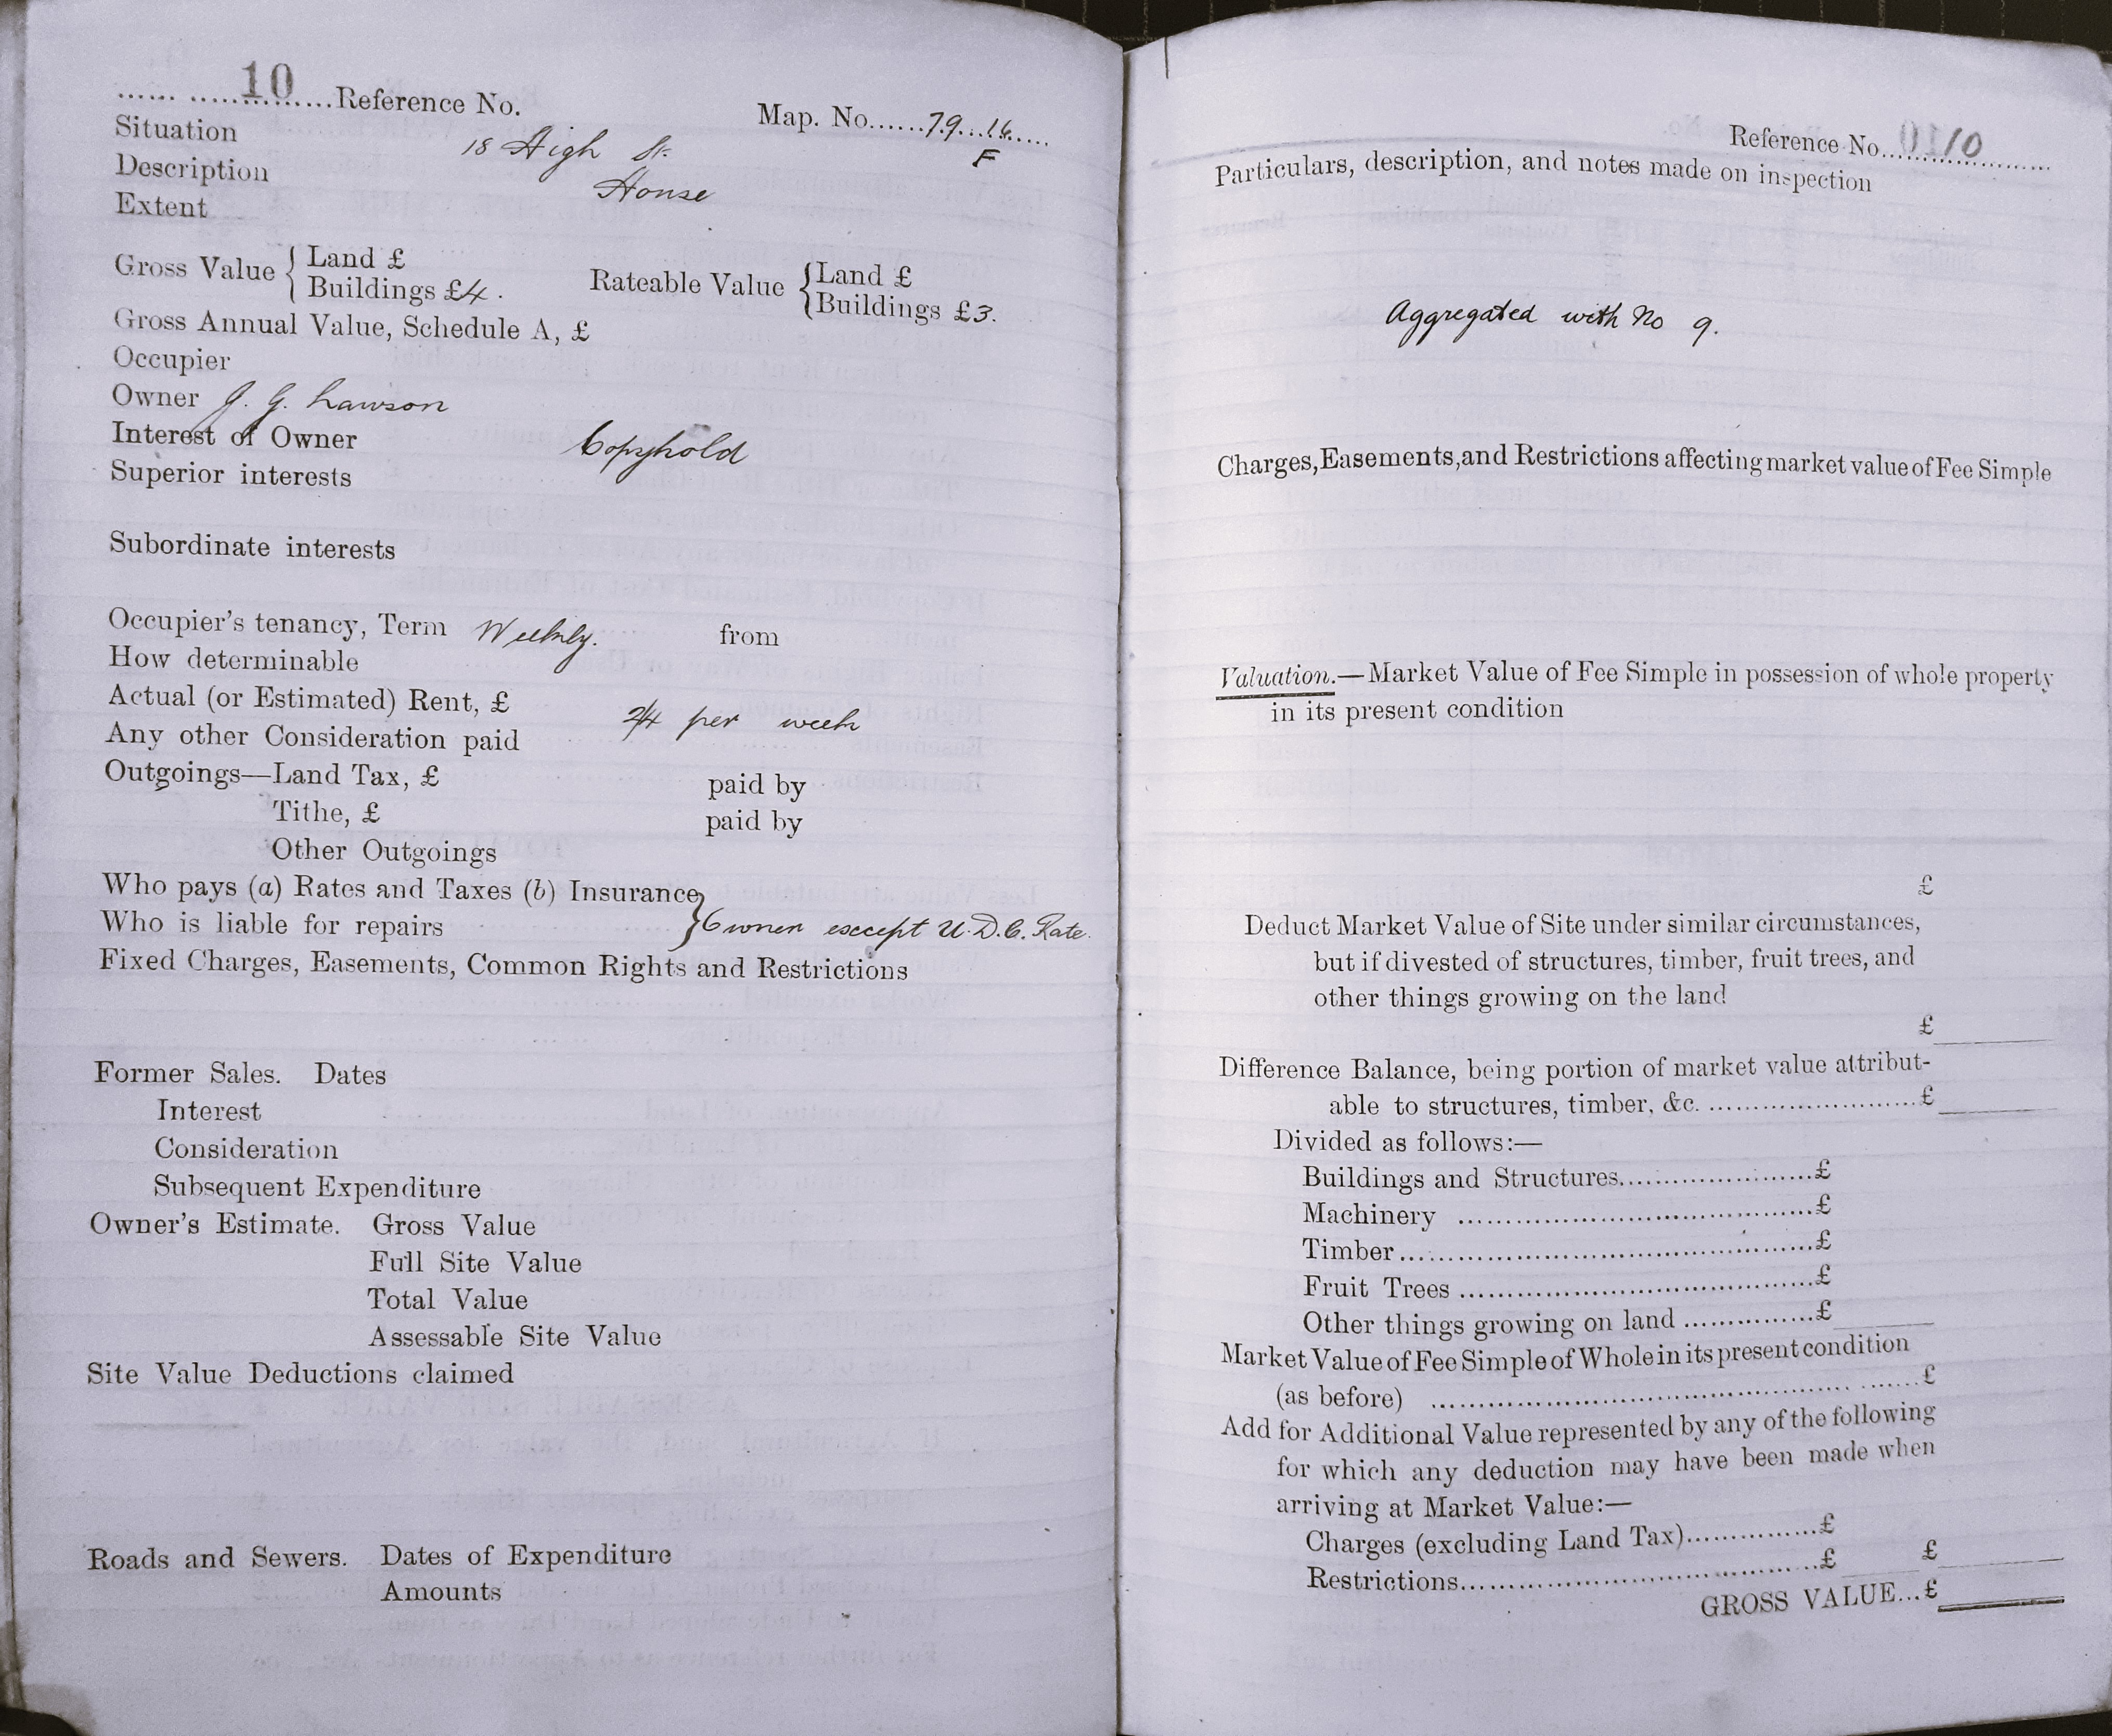 ...... ......10......Reference No.
Map. No......79...16.....
F
Situation 18 High St.
Description House
Extent
Gross Value { Land £
Buildings £4.
Rateable Value { Land £
Buildings £3.
Gross Annual Value, Schedule A, £
Occupier
Owner J. G. Lawson
Interest of Owner Copyhold
Superior interests
Subordinate interests
Occupier's tenancy, Term Weekly. from
How determinable
Actual (or Estimated) Rent, £ 2/4 per week
Any other Consideration paid
Outgoings—Land Tax, £ paid by
Tithe, £ paid by
Other Outgoings
Who pays (a) Rates and Taxes (b) Insurance
Who is liable for repairs } Owner except U.D.C. Rate.
Fixed Charges, Easements, Common Rights and Restrictions
Former Sales. Dates
Interest
Consideration
Subsequent Expenditure
Owner's Estimate. Gross Value
Full Site Value
Total Value
Assessable Site Value
Site Value Deductions claimed
Roads and Sewers. Dates of Expenditure
Amounts
Reference No......10..........
Particulars, description, and notes made on inspection
Aggregated with No 9.
Charges, Easements, and Restrictions affecting market value of Fee Simple
Valuation.—Market Value of Fee Simple in possession of whole property
in its present condition
£
Deduct Market Value of Site under similar circumstances,
but if divested of structures, timber, fruit trees, and
other things growing on the land
£
Difference Balance, being portion of market value attribut-
able to structures, timber, &c. ..........................£
Divided as follows:—
Buildings and Structures.......................£
Machinery .........................................£
Timber................................................£
Fruit Trees .........................................£
Other things growing on land ...............£
Market Value of Fee Simple of Whole in its present condition
(as before) .................................................... .......£
Add for Additional Value represented by any of the following
for which any deduction may have been made when
arriving at Market Value:—
Charges (excluding Land Tax)...............£
Restrictions..........................................£ £
GROSS VALUE...£